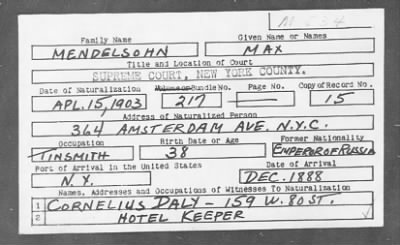 M 534
Family Name Given Name or Names
MENDELSOHN MAX
Title and Location of Court
SUPREME COURT, NEW YORK COUNTY.
Date of Naturalization Volume or Bundle No. Page No. Copy of Record No.
APL. 15, 1903 217 — 15
Address of Naturalized Person
364 AMSTERDAM AVE. N.Y.C.
Occupation Birth Date or Age Former Nationality
TINSMITH 38 EMPEROR OF RUSSIA
Port of Arrival in the United States Date of Arrival
N.Y. DEC. 1888
Names, Addresses and Occupations of Witnesses To Naturalization
1 CORNELIUS DALY - 159 W. 80 ST.
2 HOTEL KEEPER